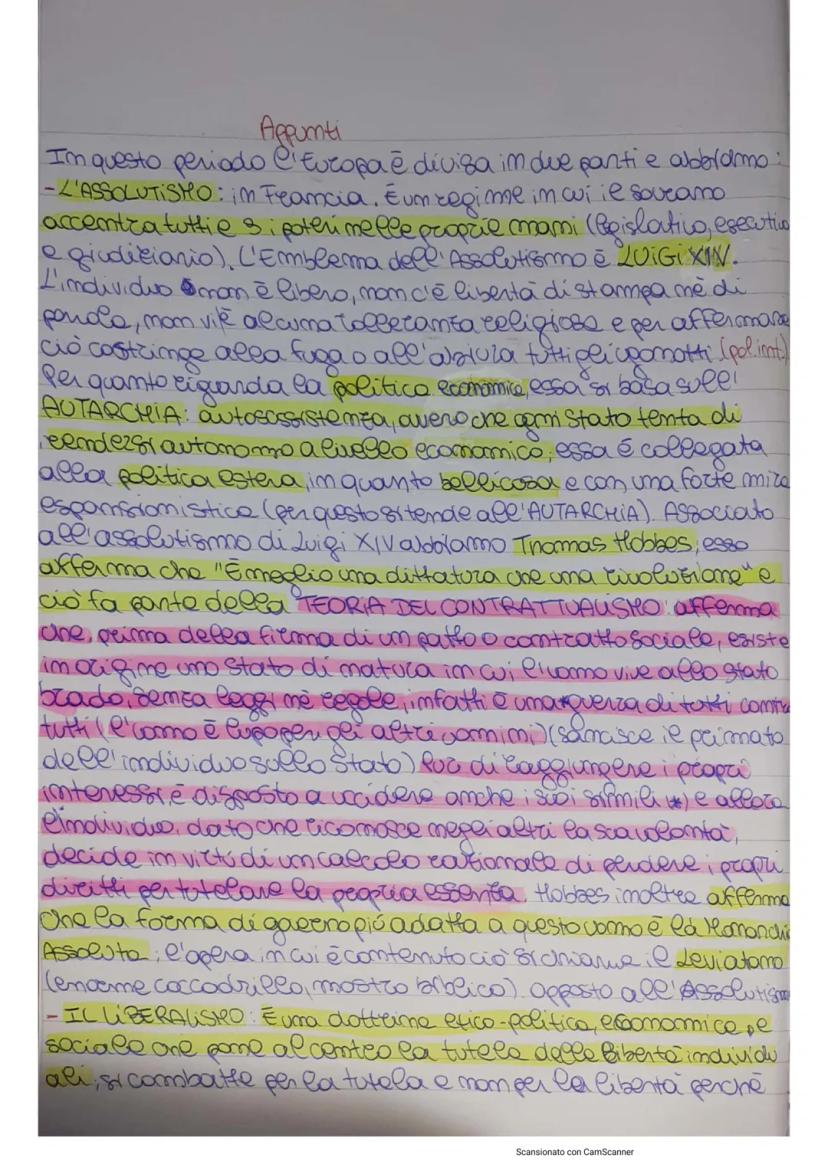 Appunti
In questo periodo l'Europa è divisa in due parti e abbiamo:
- L'ASSOLUTISMO: in Francia. È un regime in cui il sovrano
accentra tutti e 3 i poteri nelle proprie mani (legislativo, esecutivo
e giudiziario). L'Emblema dell'Assolutismo è LUIGI XIV.
L'individuo non è libero, non c'è libertà di stampa nè di
parola, non vi è alcuna tolleranza religiosa e per affermare
ciò costringe alla fuga o all'abiura tutti gli ugonotti (pol.int.)
Per quanto riguarda la politica economica, essa si basa sull'
AUTARCHIA: autosussistenza, ovvero che ogni Stato tenta di
rendersi autonomo a livello economico; essa è collegata
alla politica estera, in quanto bellicosa e con una forte mira
espansionistica (per questo si tende all'AUTARCHIA). Associato
all'assolutismo di Luigi XIV abbiamo Thomas Hobbes, esso
afferma che "È meglio una dittatura che una rivoluzione" e
ciò fa parte della TEORIA DEL CONTRATTUALISMO: afferma
che, prima della firma di un patto o contratto sociale, esiste
in origine uno Stato di natura in cui l'uomo vive allo stato
brado, senza leggi nè regole, infatti è una guerra di tutti contro
tutti (l'uomo è lupo per gli altri uomini) (sancisce il primato
dell'individuo sullo Stato) di raggiungere i propri
interessi è disposto a uccidere anche i suoi simili (*) e allora
l'individuo, dato che riconosce negli altri la sua volontà,
decide in virtù di un calcolo razionale di perdere i propri
diritti per tutelare la propria essenza. Hobbes inoltre afferma
che la forma di governo più adatta a questo uomo è la Monarchia
Assoluta; l'opera in cui è contenuto ciò si chiama il Leviatano
(enorme coccodrillo, mostro biblico). Opposto all'Assolutismo
- IL LIBERALISMO: È una dottrina etico-politica, economica e
sociale che pone al centro la tutela delle libertà individu
ali, si combatte per la tutela e non per la libertà perchè
Scansionato con CamScanner